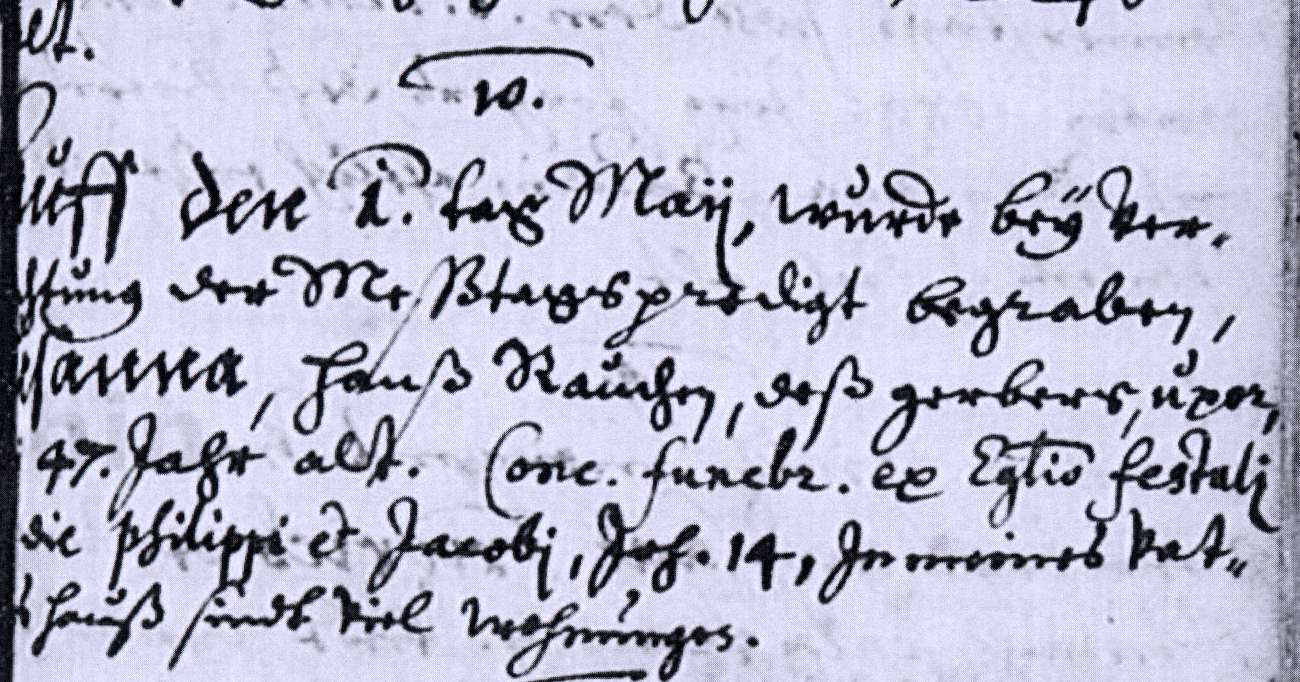 et.
10.
Auff den 1. tag Maij, wurde beÿ Ver-
chtung der Meßtagspredigt begraben,
Susanna, Hanß Rauchen, deß gerbers, uxor,
47. Jahr alt. Conc. funebr. ex Eglio festalj
die Philippi et Jacobj, Joh. 14, In meines Vat-
s hauß sindt viel Wohnunges.